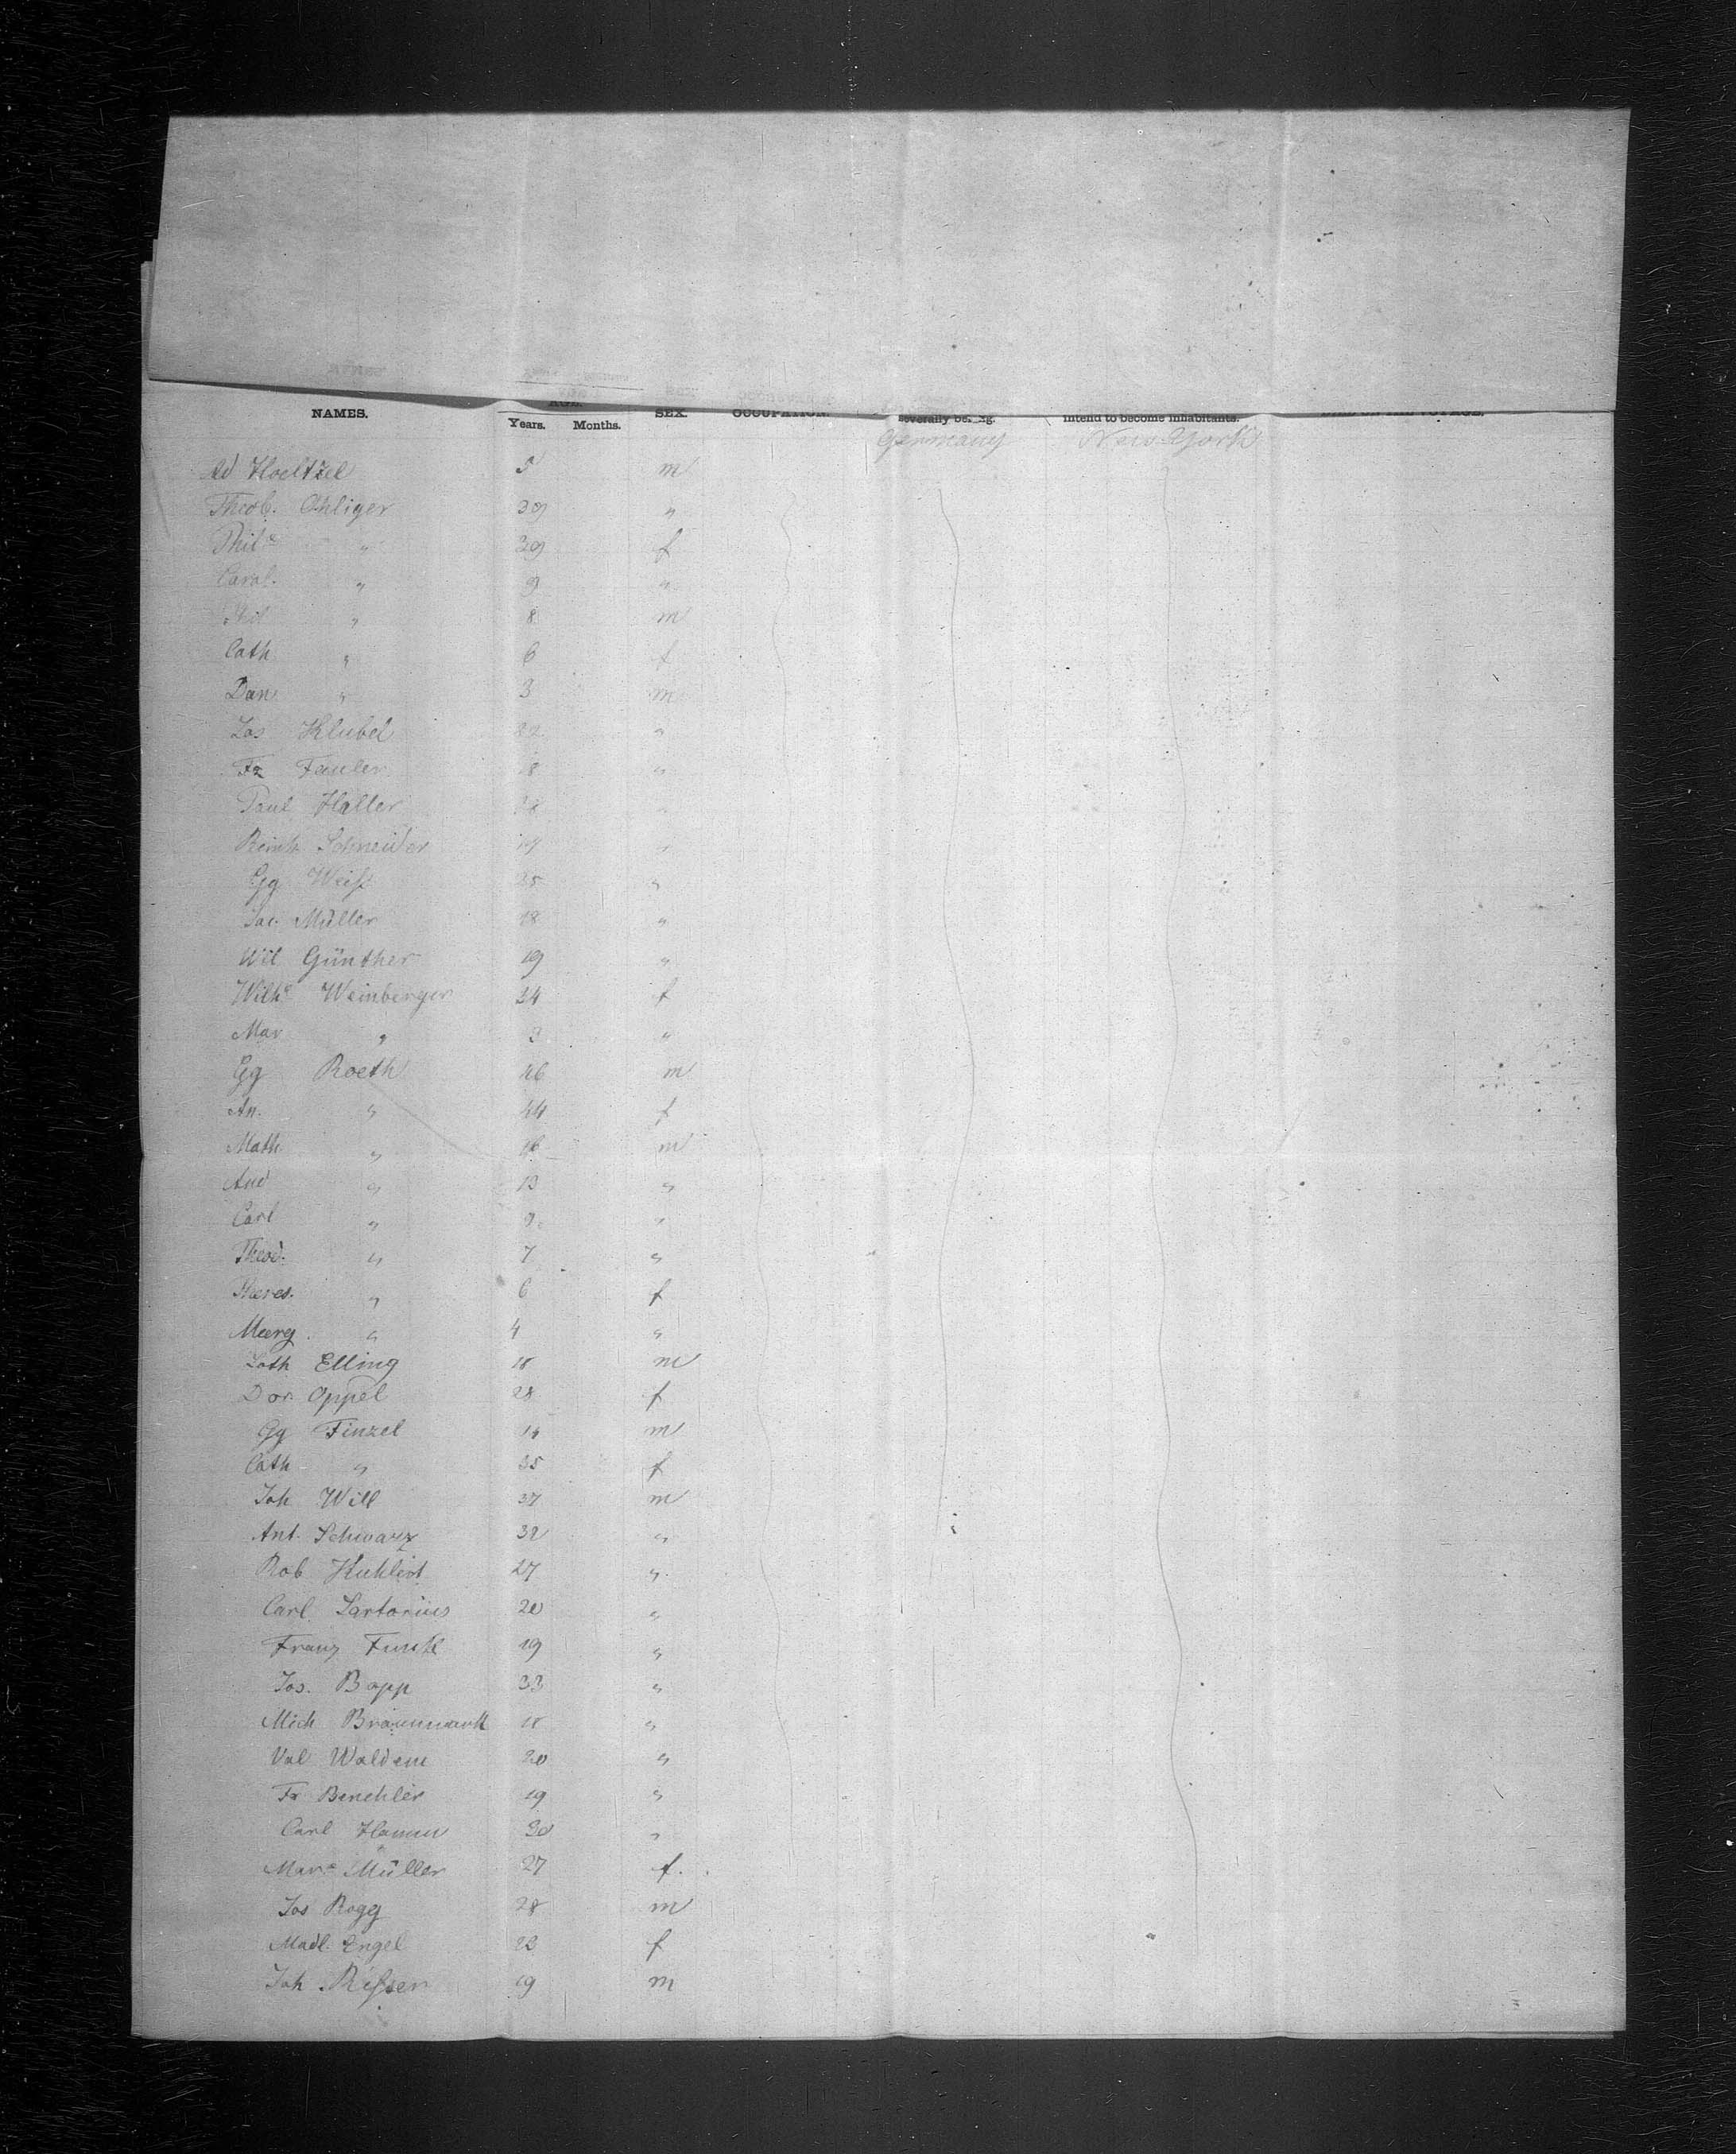 NAMES. AGE. Years. Months. SEX. OCCUPATION. severally belong. intend to become inhabitants.
Germany New York
Ad Hoeltzel 5 m
Theob. Ohliger 39 "
Phil^e " 39 f
Carol. " 9 "
Phil " 8 m
Cath " 6 f
Dan " 3 m
Jos Klubel 22 "
Fz Fauler 18 "
Paul Haller "
Reinh Schneider 19 "
Gg Weiß 25 "
Jac. Müller 18 "
Wil Günther 19 "
Wilh^e Weinberger 24 f
Mar " 3 "
Gg Roeth 46 m
An. " 44 f
Math. " 16 m
And " 13 "
Carl " 9 "
Theod. " 7 "
Theres. " 6 f
Marg. " 4 "
Loth Elling 18 m
Dor. Oppel 28 f
Gg Finzel 14 m
Cath " 35 f
Joh Will 37 m
Ant. Schwarz 32 "
Rob 27 "
Carl Sartorius 20 "
Franz 19 "
Jos. Bopp 33 "
Mich 18 "
Val Waldem 20 "
Fr 19 "
Carl Hamm 30 "
Mar^e Müller 27 f.
Jos Rogg 28 m
Madl. Engel 23 f
Joh Rißer 19 m